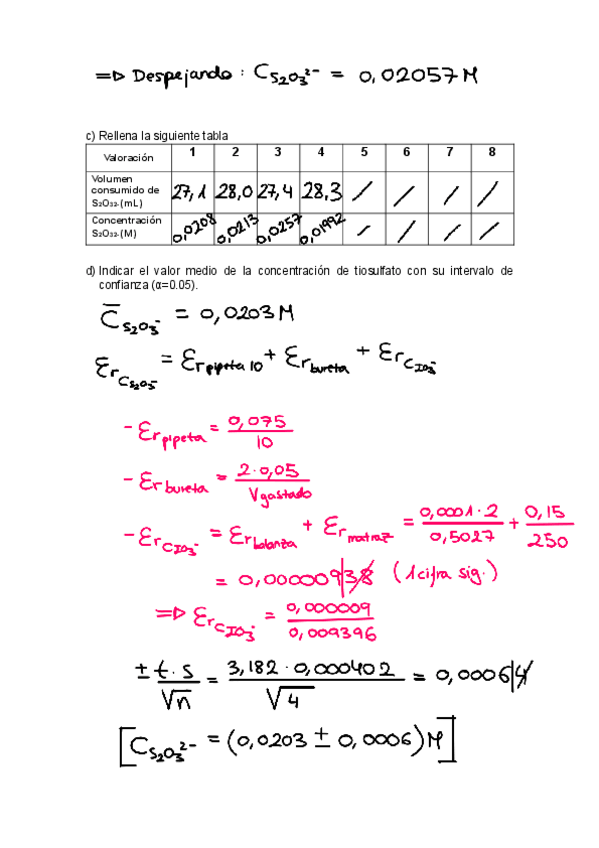 => Despejando : C S₂O₃²⁻ = 0,02057 M
c) Rellena la siguiente tabla
Valoración 1 2 3 4 5 6 7 8
Volumen consumido de S₂O₃₂-(mL) 27,1 28,0 27,4 28,3 / / / /
Concentración S₂O₃₂-(M) 0,0208 0,0213 0,0257 0,01992 / / / /
d) Indicar el valor medio de la concentración de tiosulfato con su intervalo de
confianza (α=0.05).
C̅ S₂O₃⁻ = 0,0203 M
Ɛr C S₂O₃⁻ = Ɛr pipeta 10 + Ɛr bureta + Ɛr C IO₃⁻
- Ɛr pipeta = 0,075 / 10
- Ɛr bureta = 2·0,05 / Vgastado
- Ɛr C IO₃⁻ = Ɛr balanza + Ɛr matraz = 0,0001·2 / 0,5027 + 0,15 / 250
= 0,00000938 (1 cifra sig.)
=> Ɛr C IO₃⁻ = 0,000009 / 0,009396
± t·s / √n = 3,182·0,000402 / √4 = 0,00064
[C S₂O₃²⁻ = (0,0203 ± 0,0006) M]